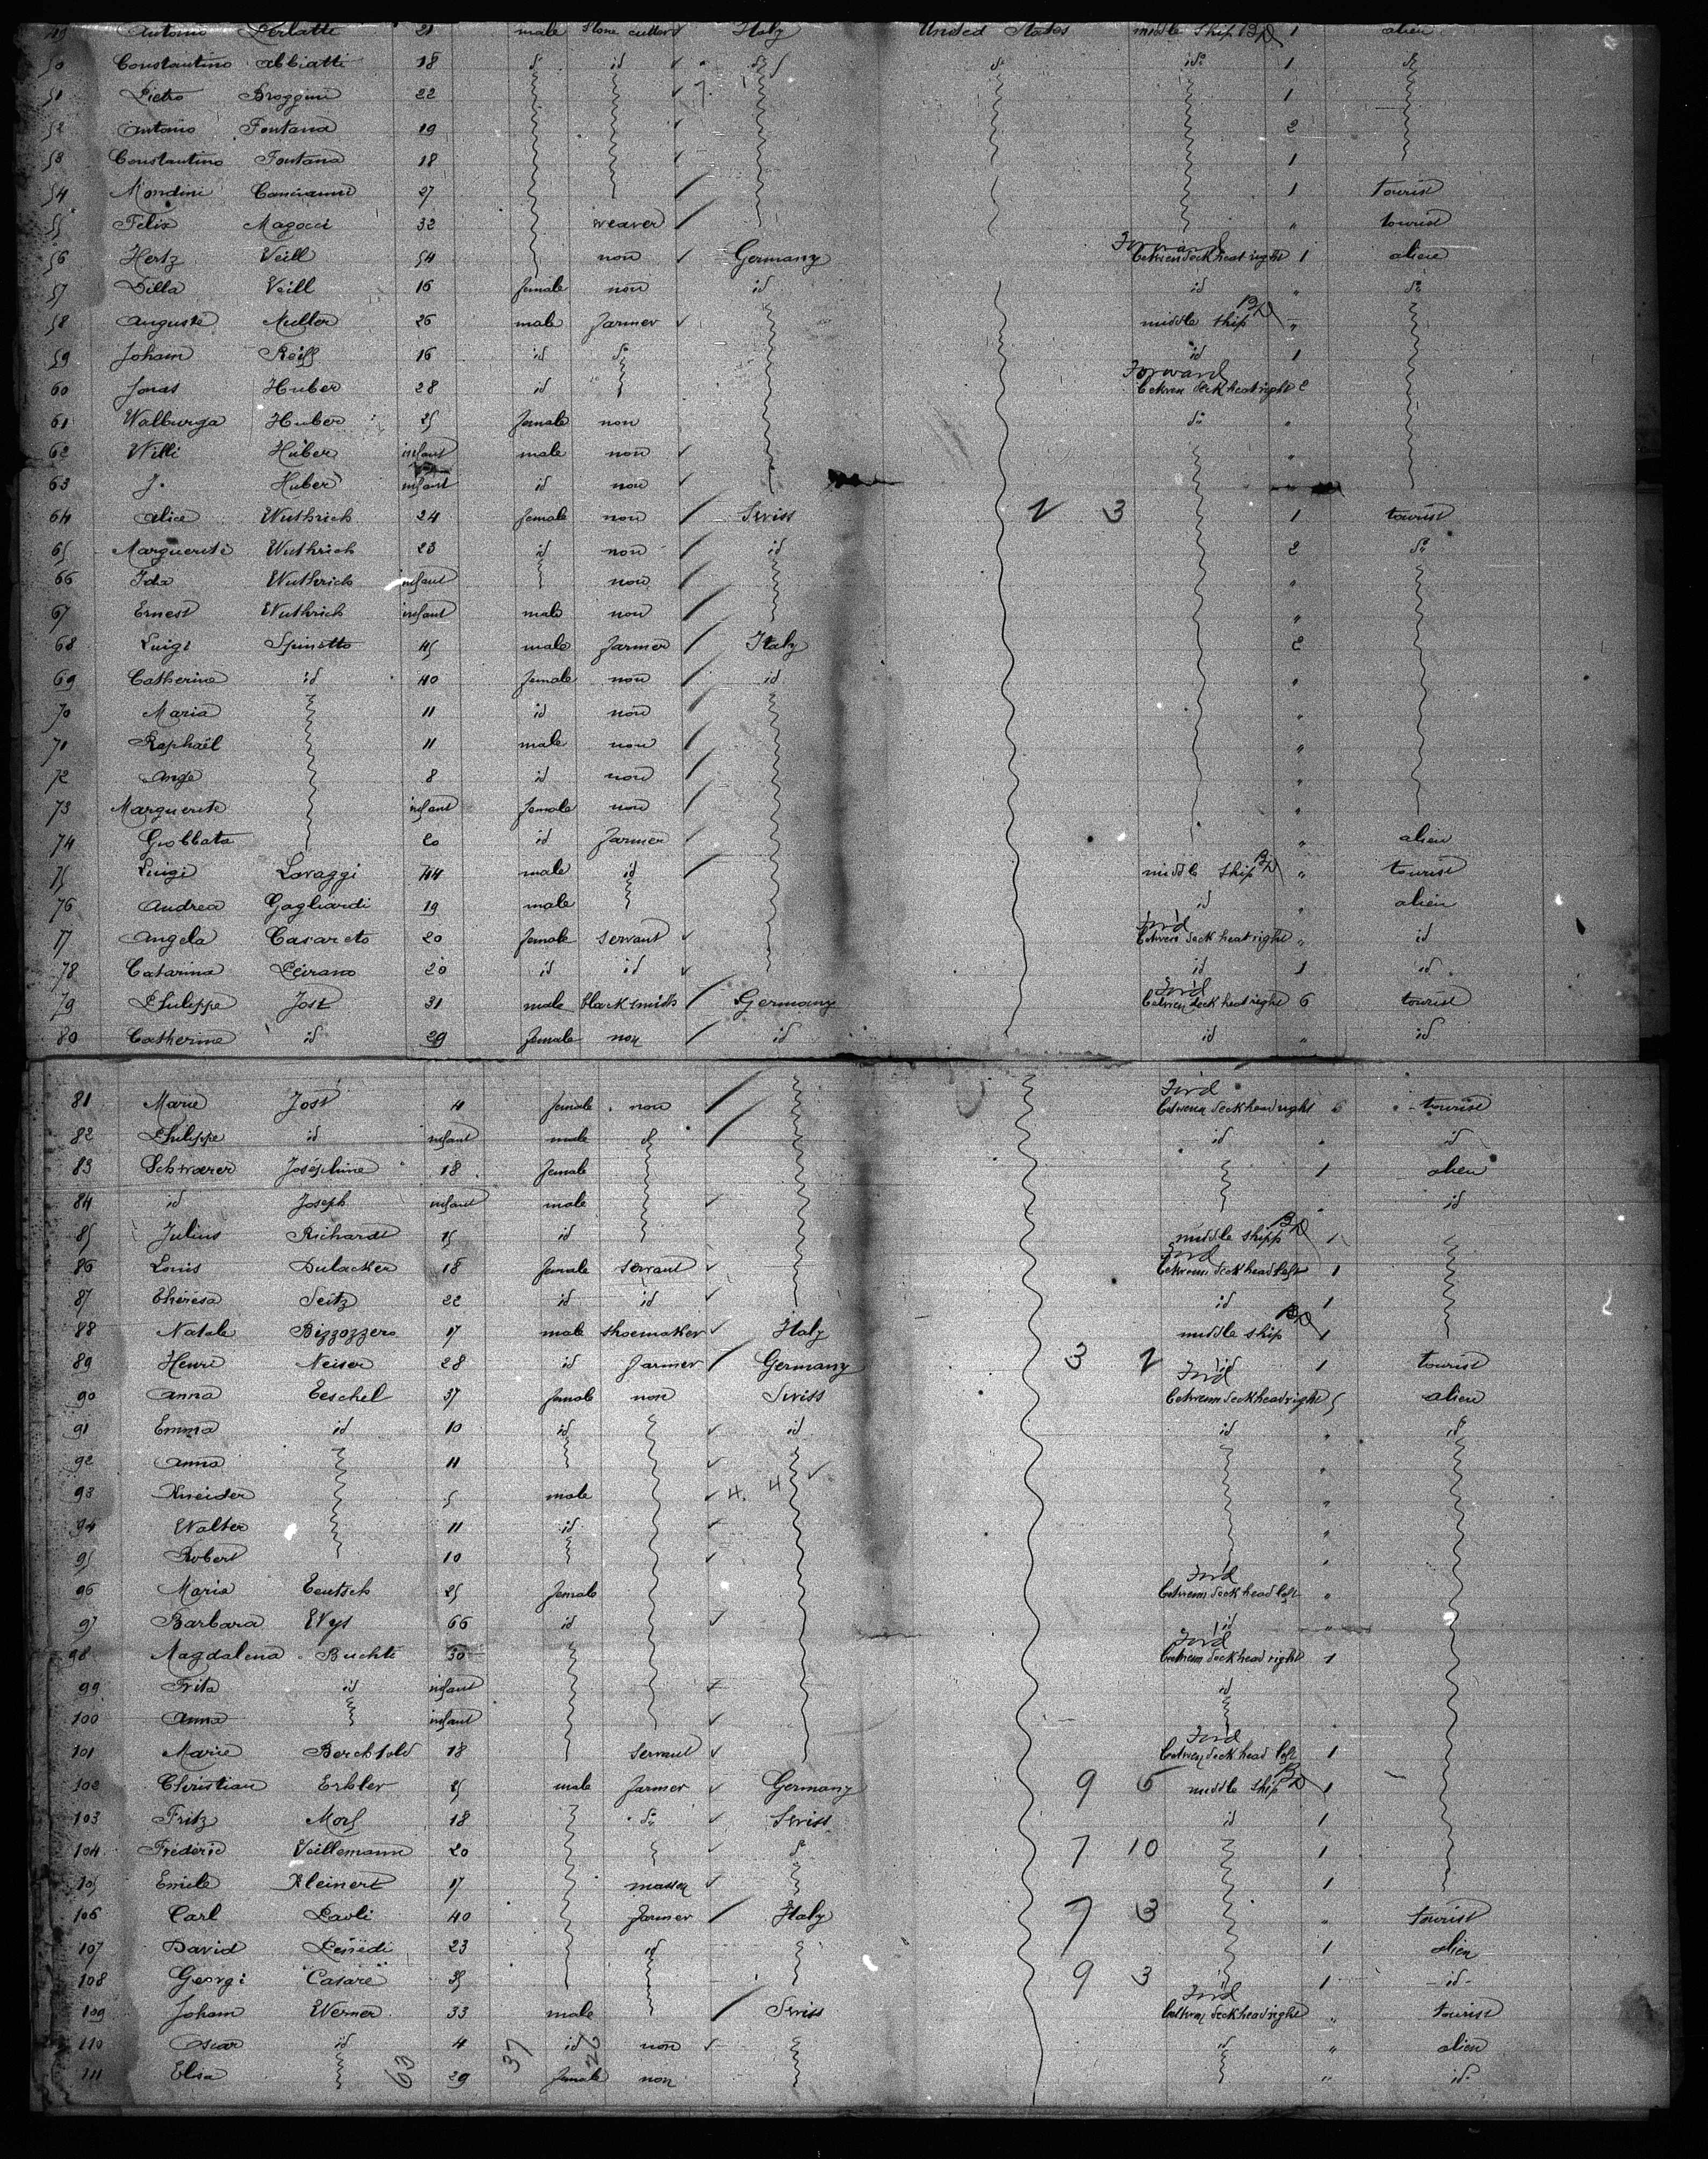 49 Antonio Perlatti 21 male Stone cutter Italy United States middle ship BD 1 alien
50 Constantino Abbiatti 18 do id do do ido 1 do
51 Pietro Broggini 22 7. 1
52 Antonio Fontana 19 2
53 Constantino Fontana 18 1
54 Mondini 27 1 tourist
55 Felix Magocci 32 weaver " tourist
56 Hertz Veill 54 non Germany Forward between deck heat right 1 alien
57 Dilla Veill 16 female non id id " do
58 Auguste Muller 26 male farmer middle ship BD "
59 Joham Reiff 16 id do id 1
60 Jonas Huber 28 id Forward between deck heat right 2
61 Walburga Huber 25 female non do "
62 Willi Huber infant male non "
63 J. Huber infant id non "
64 Alice Wuthrich 24 female non Swiss 2 3 1 tourist
65 Marguerite Wuthrich 23 id non id 2 do
66 Ida Wuthrich infant non "
67 Ernest Wuthrich infant male non "
68 Luigi Spinetto 45 male farmer Italy 2
69 Catherine id 40 female non id "
70 Maria 11 id non "
71 Raphaël 11 male non "
72 Ange 8 id non "
73 Marguerite infant female non "
74 Giobbata 20 id farmer " alien
75 Luigi Lavaggi 44 male id middle ship BD " tourist
76 Andrea Gagliardi 19 male id " alien
77 Angela Casareto 20 female servant Ford between deck heat right " id
78 Catarina Peirano 20 id id id 1 id
79 Philippe Jost 31 male blacksmith Germany Ford between deck heat right 6 tourist
80 Catherine id 29 female non id id " id
81 Marie Jost 4 female non Ford between deck head right 6 tourist
82 Philippe id infant male id id " id
83 Schwarer Joséphine 18 female 1 alien
84 id Joseph infant male " id
85 Julius Richardt 15 id middle shipp BD 1
86 Louis Dulacker 18 female servant Ford between deck head left 1
87 Theresa Seitz 22 id id id 1
88 Natale Bizzozzero 17 male shoemaker Italy middle ship BD 1
89 Henri Neiser 28 id farmer Germany 3 2 id 1 tourist
90 Anna Teschel 37 female non Swiss Ford between deck head right 5 alien
91 Emma id 10 id id id " id
92 Anna 11 "
93 Kneider 5 male 4. 4 "
94 Walter 11 id "
95 Robert 10 "
96 Maria Teutsch 25 female Ford between deck head left "
97 Barbara Wys 66 id id "
98 Magdalena Buchte 30 Ford between deck head right 1
99 Frita id infant id
100 Anna infant
101 Marie Berchtold 18 servant Ford between deck head left 1
102 Christian Erbler 25 male farmer Germany 9 6 middle ship BD 1
103 Fritz Morf 18 do Swiss id 1
104 Frédéric Veillemann 20 do 7 10 1
105 Emile Kleinert 17 1
106 Carl Paoli 40 farmer Italy 7 3 " tourist
107 David 23 id 1 alien
108 Georgi Casare 35 9 3 1 id
109 Joham Werner 33 male Swiss Ford between deck head right " tourist
110 Oscar id 4 id non id " alien
111 Elisa 29 female non " ido
63 37 26